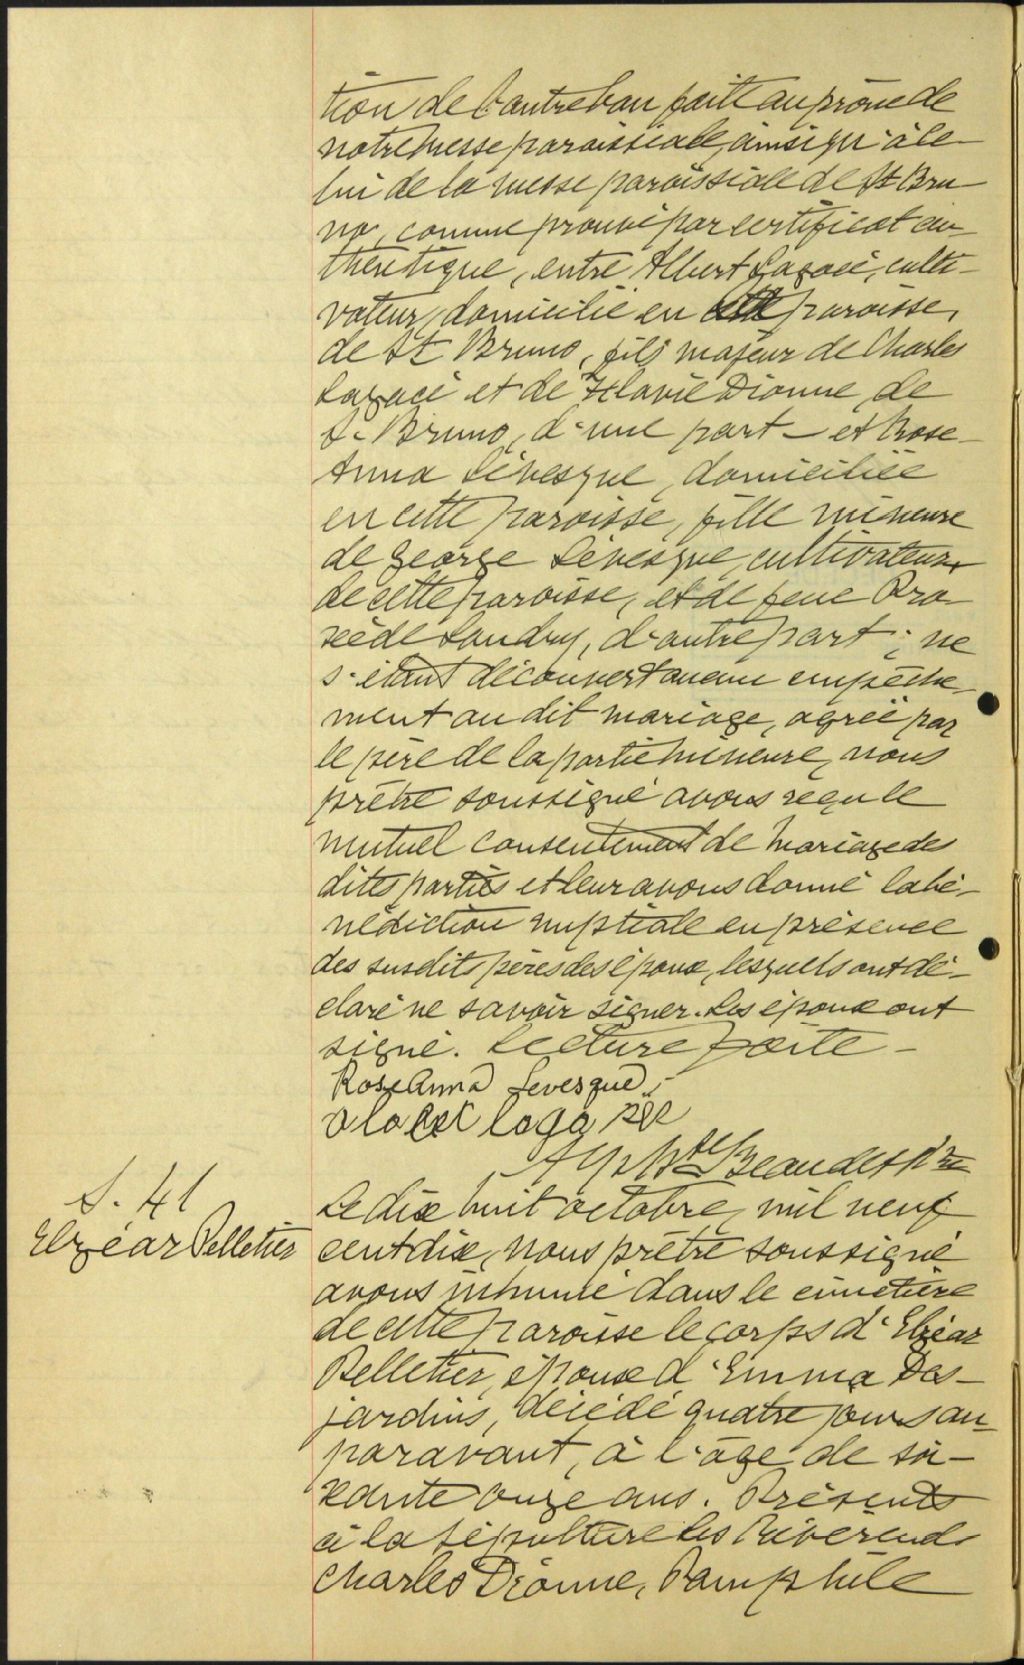 tion de l'autre ban faite au prône de
notre messe paroissiale, ainsi qu'à ce-
lui de la messe paroissiale de St Bru-
no, comme prouvé par certificat au-
thentique, entre Albert Lagacé, culti-
vateur, domicilié en paroisse,
de St Bruno, fils majeur de Charles
Lagacé et de Flavie Dionne, de
St Bruno, d'une part - et Rose-
Anna Lévesque, domiciliée
en cette paroisse, fille mineure
de George Lévesque, cultivateur
de cette paroisse, et de feue Pra-
xède Landry, d'autre part ; ne
s'étant découvert aucun empêche-
ment au dit mariage, agréé par
le père de la partie mineure, nous
prêtre soussigné avons reçu le
mutuel consentement de mariage des
dites parties et leur avons donné la bé-
nédiction nuptiale en présence
des susdits pères des époux, lesquels ont dé-
claré ne savoir signer. Les époux ont
signé. Lecture faite -
Rose Anna Levesque
alabert lagasse
Beaudet Ptre
S. 41
Elzéar Pelletier
Le dix huit octobre, mil neuf
cent dix, nous prêtre soussigné
avons inhumé dans le cimetière
de cette paroisse le corps d'Elzéar
Pelletier, époux d'Emma Des-
jardins, décédé quatre jours au-
paravant, à l'âge de soi-
xante onze ans. Présents
à la sépulture les Révérends
Charles Dionne, Pamphile